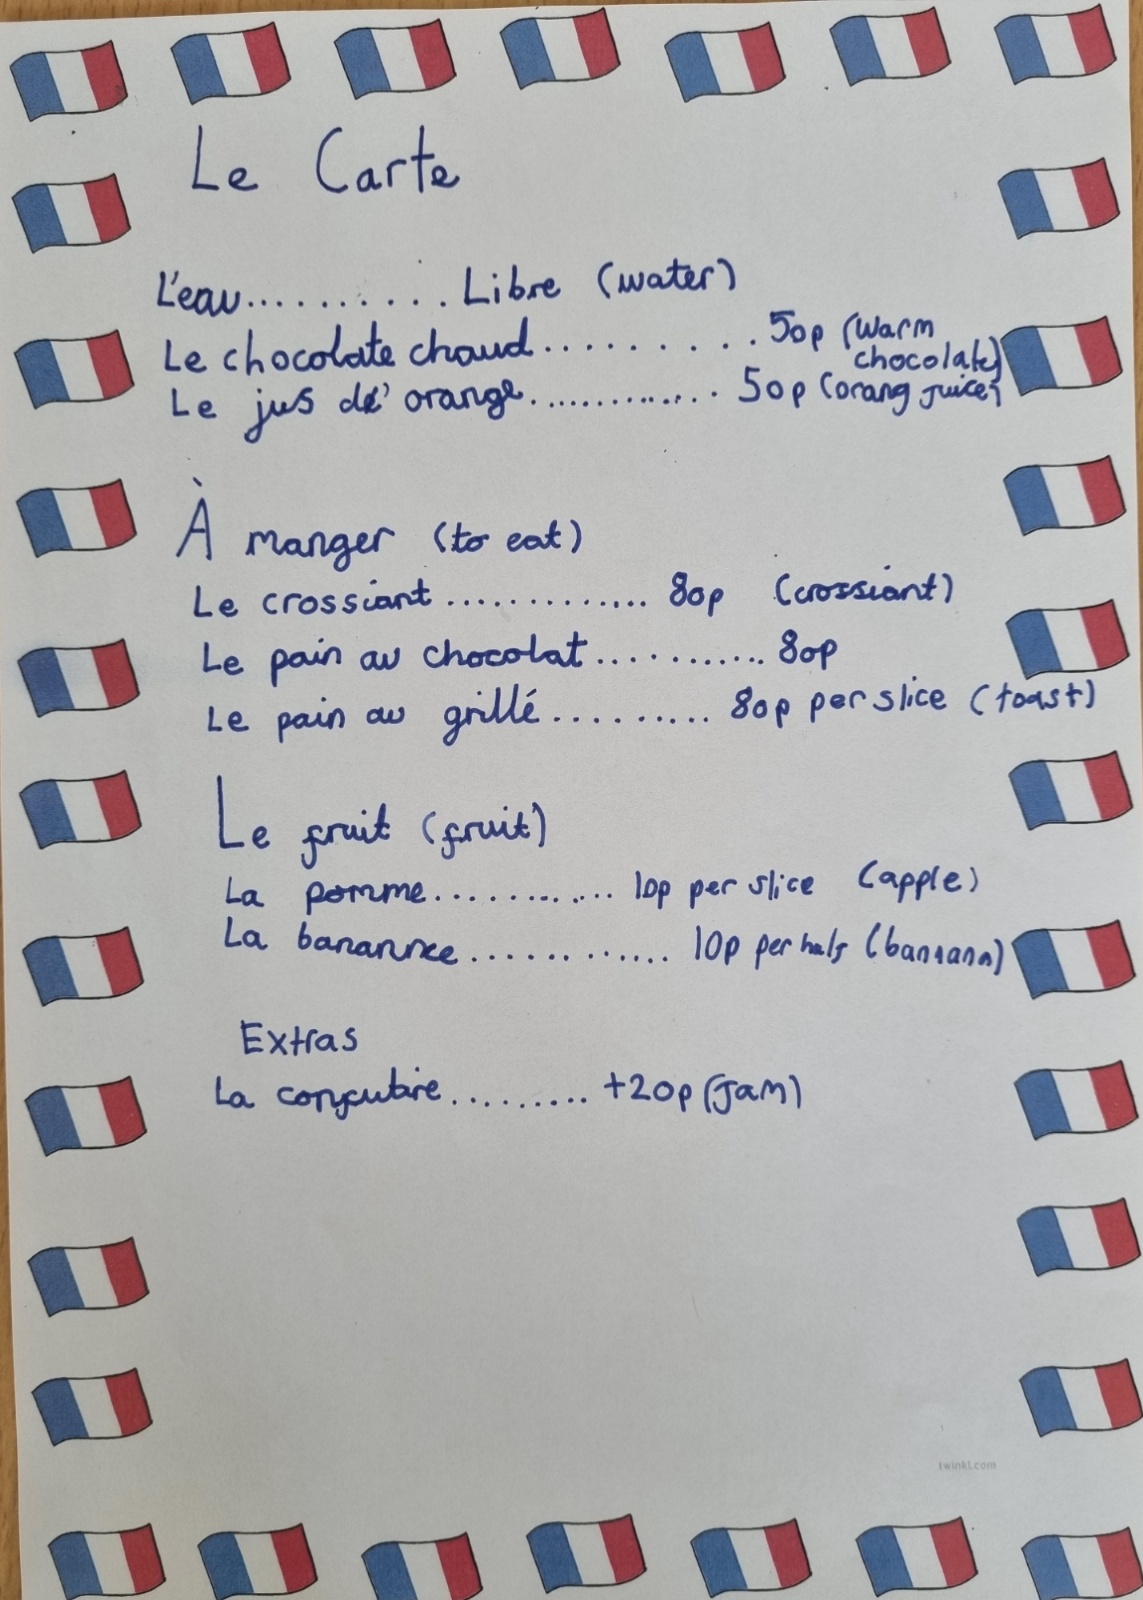 Le Carte
L'eau.......... Libre (water)
Le chocolate chaud.......... 50p (warm
chocolate)
Le jus de' orange............ 50p (orang juice)
À manger (to eat)
Le crossiant ............. 80p (crossiant)
Le pain au chocolat........... 80p
Le pain au grillé.......... 80p per slice (toast)
Le fruit (fruit)
La pomme........... 10p per slice (apple)
La banannee............ 10p per half (banana)
Extras
La confuture......... +20p (Jam)
twinkl.com